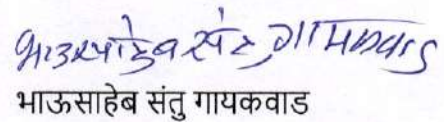 भाऊसाहेब संतु गायकवाड
भाऊसाहेब संतु गायकवाड